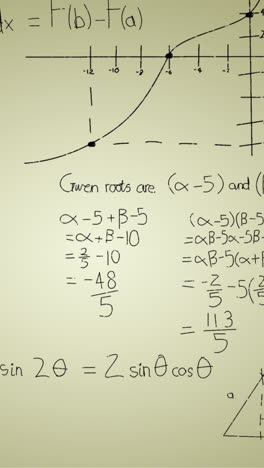 dx = F(b)-F(a)
4
2
-12 -10 -8 -6 -4 -2
Given roots are (α-5) and (
α-5+β-5
=α+β-10
=2/5-10
=-48/5
(α-5)(β-5
=αβ-5α-5β-
=αβ-5(α+β
=-2/5-5(2/5
=113/5
sin 2θ = 2 sinθ cosθ
a